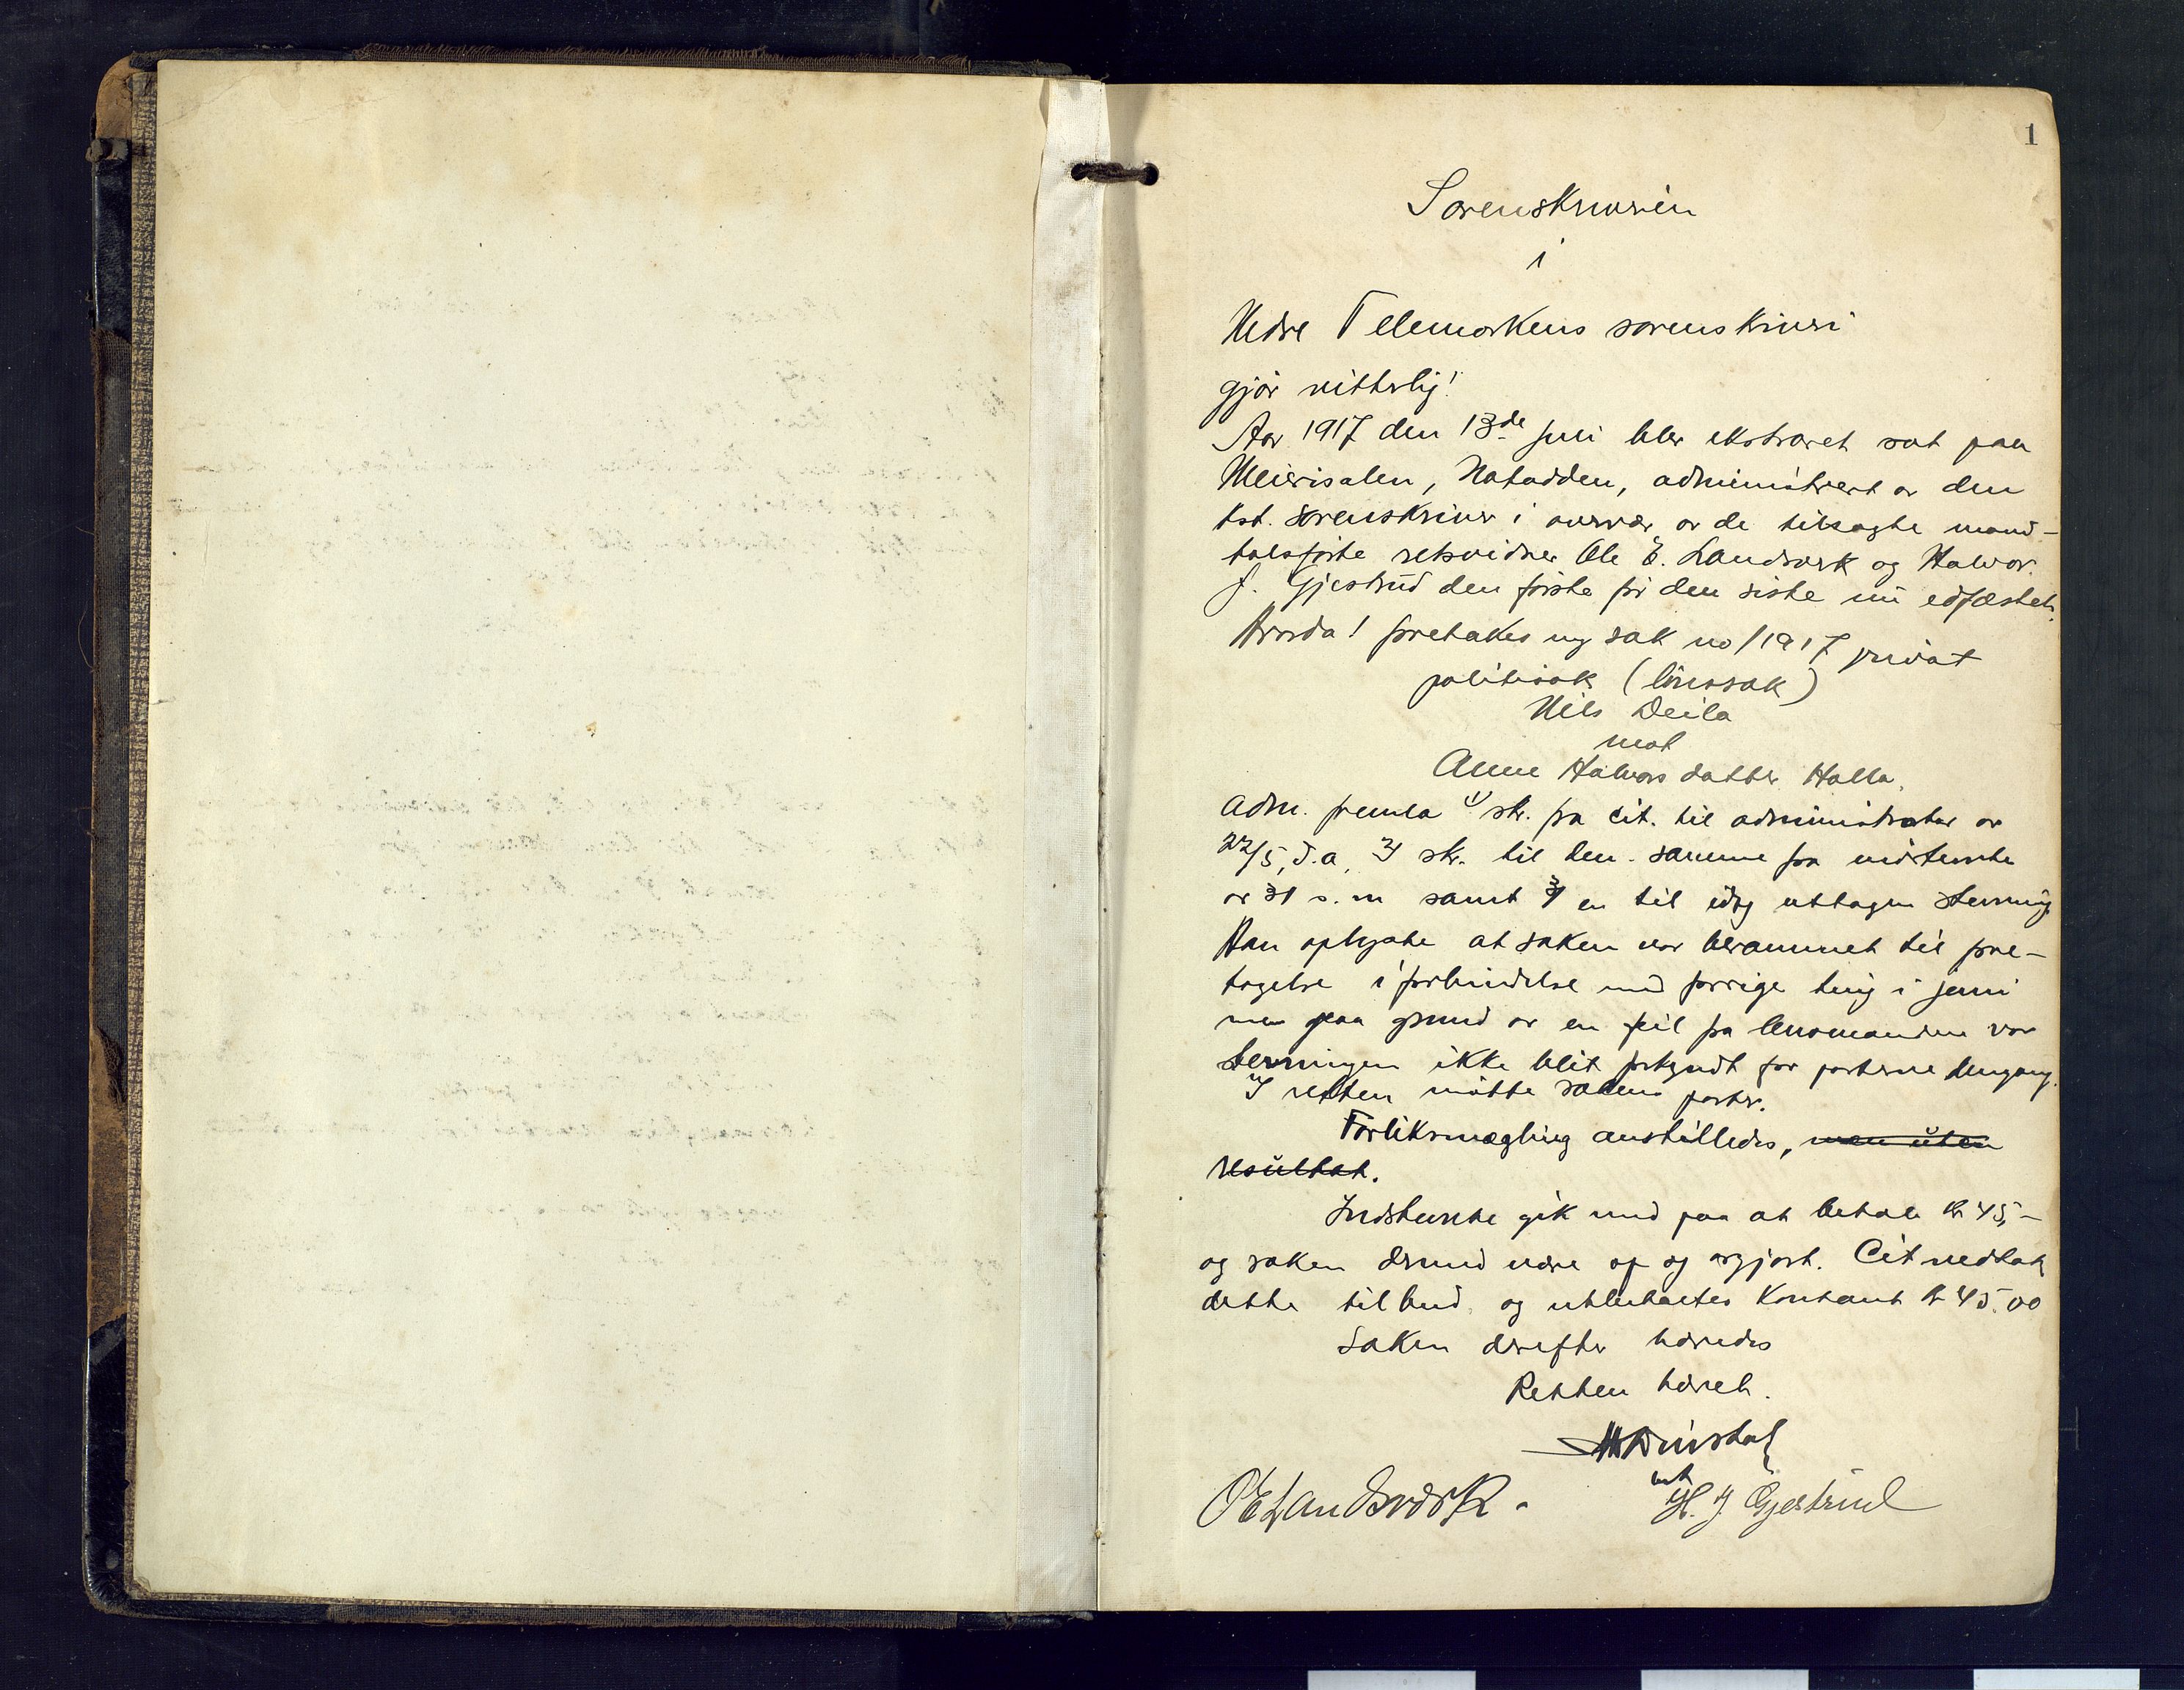 1
Sorenskriveren
i
Nedre Telemarkens sorenskriveri
gjør vitterlig!
Aar 1917 den 13de juli blev ekstraret sat paa
Meierisalen, Notodden, administrert av den
kst. sorenskriver i overvær av de tilsagte mand-
talsførte retsvidner Ole E. Landsverk og Halvor
J. Gjestrud den første før den siste nu edfæstet.
Hvorda! foretakes ny sak no 1/1917 privat
politisak (lønssak)
Nils Deila
mot
Anne Halvorsdatter Halla.
Adm. fremla 1/ skr. fra cit. til administrator av
22/5, d.a, 2/ skr. til den samme fra indstevnte
av 31 s.m samt 3/ en til idag uttagen stevning.
Han oplyste at saken var berammet til fore-
tagelse i forbindelse med forrige ting i juni
men paa grund av en feil fra lensmanden var
stevningen ikke blit forkyndt for parterne dengang.
I retten møtte sakens parter.
Forliksmægling anstilledes, men uten
resultat.
Indstevnte gik med paa at betale kr 45,-
og saken dermed være op og avgjort. Cit vedtok
dette tilbud og utbetaltes kontant kr 45.00
Saken derefter hævedes
Retten hævet.
kst
O E Landsverk.
H. J. Gjestrud